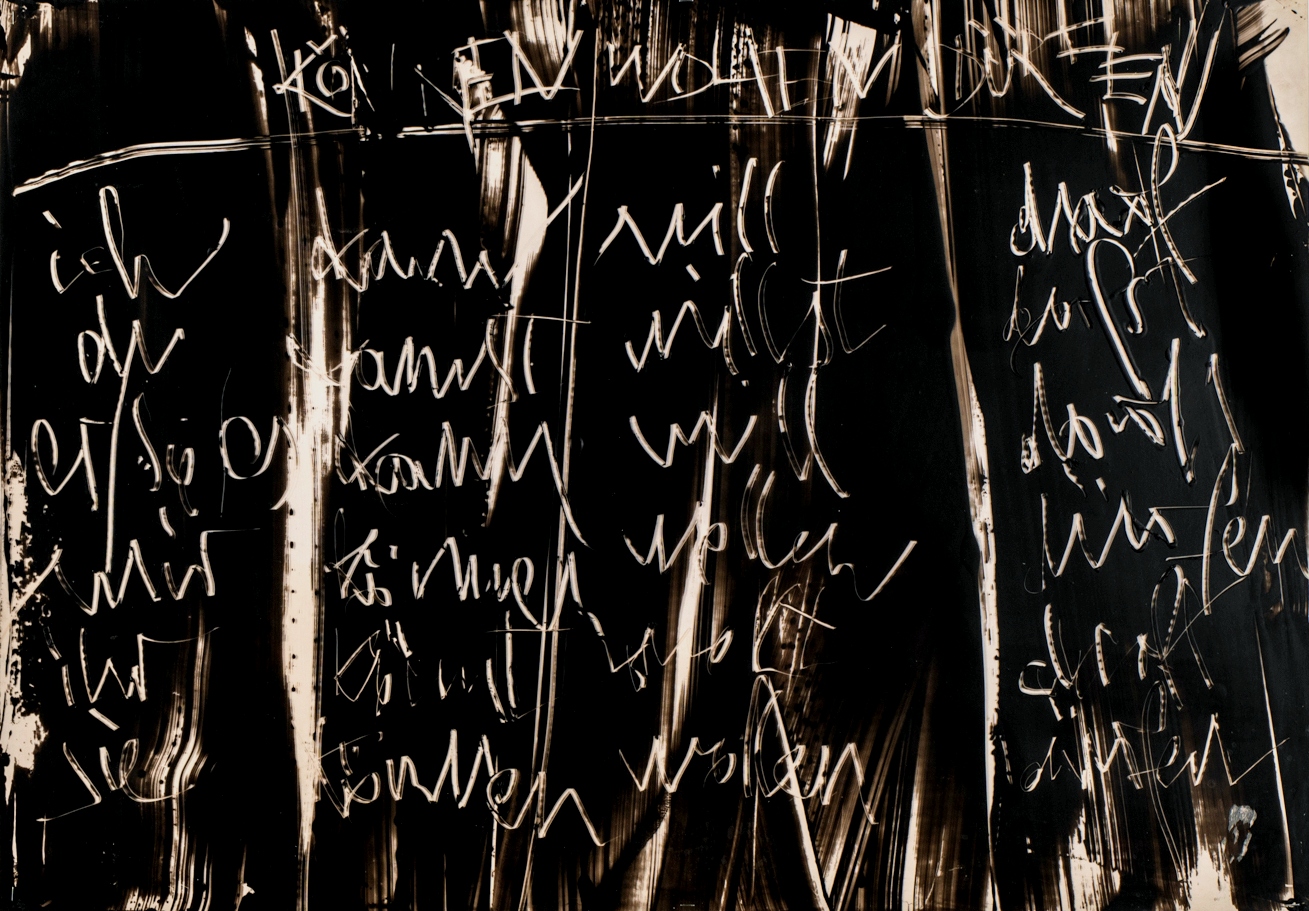 KÖNNEN WOLLEN DÜRFEN
ich kann will darf
du kannst willst
er sie es kann will darf
wir können wollen dürfen
ihr könnt wollt dürft
sie können wollen dürfen